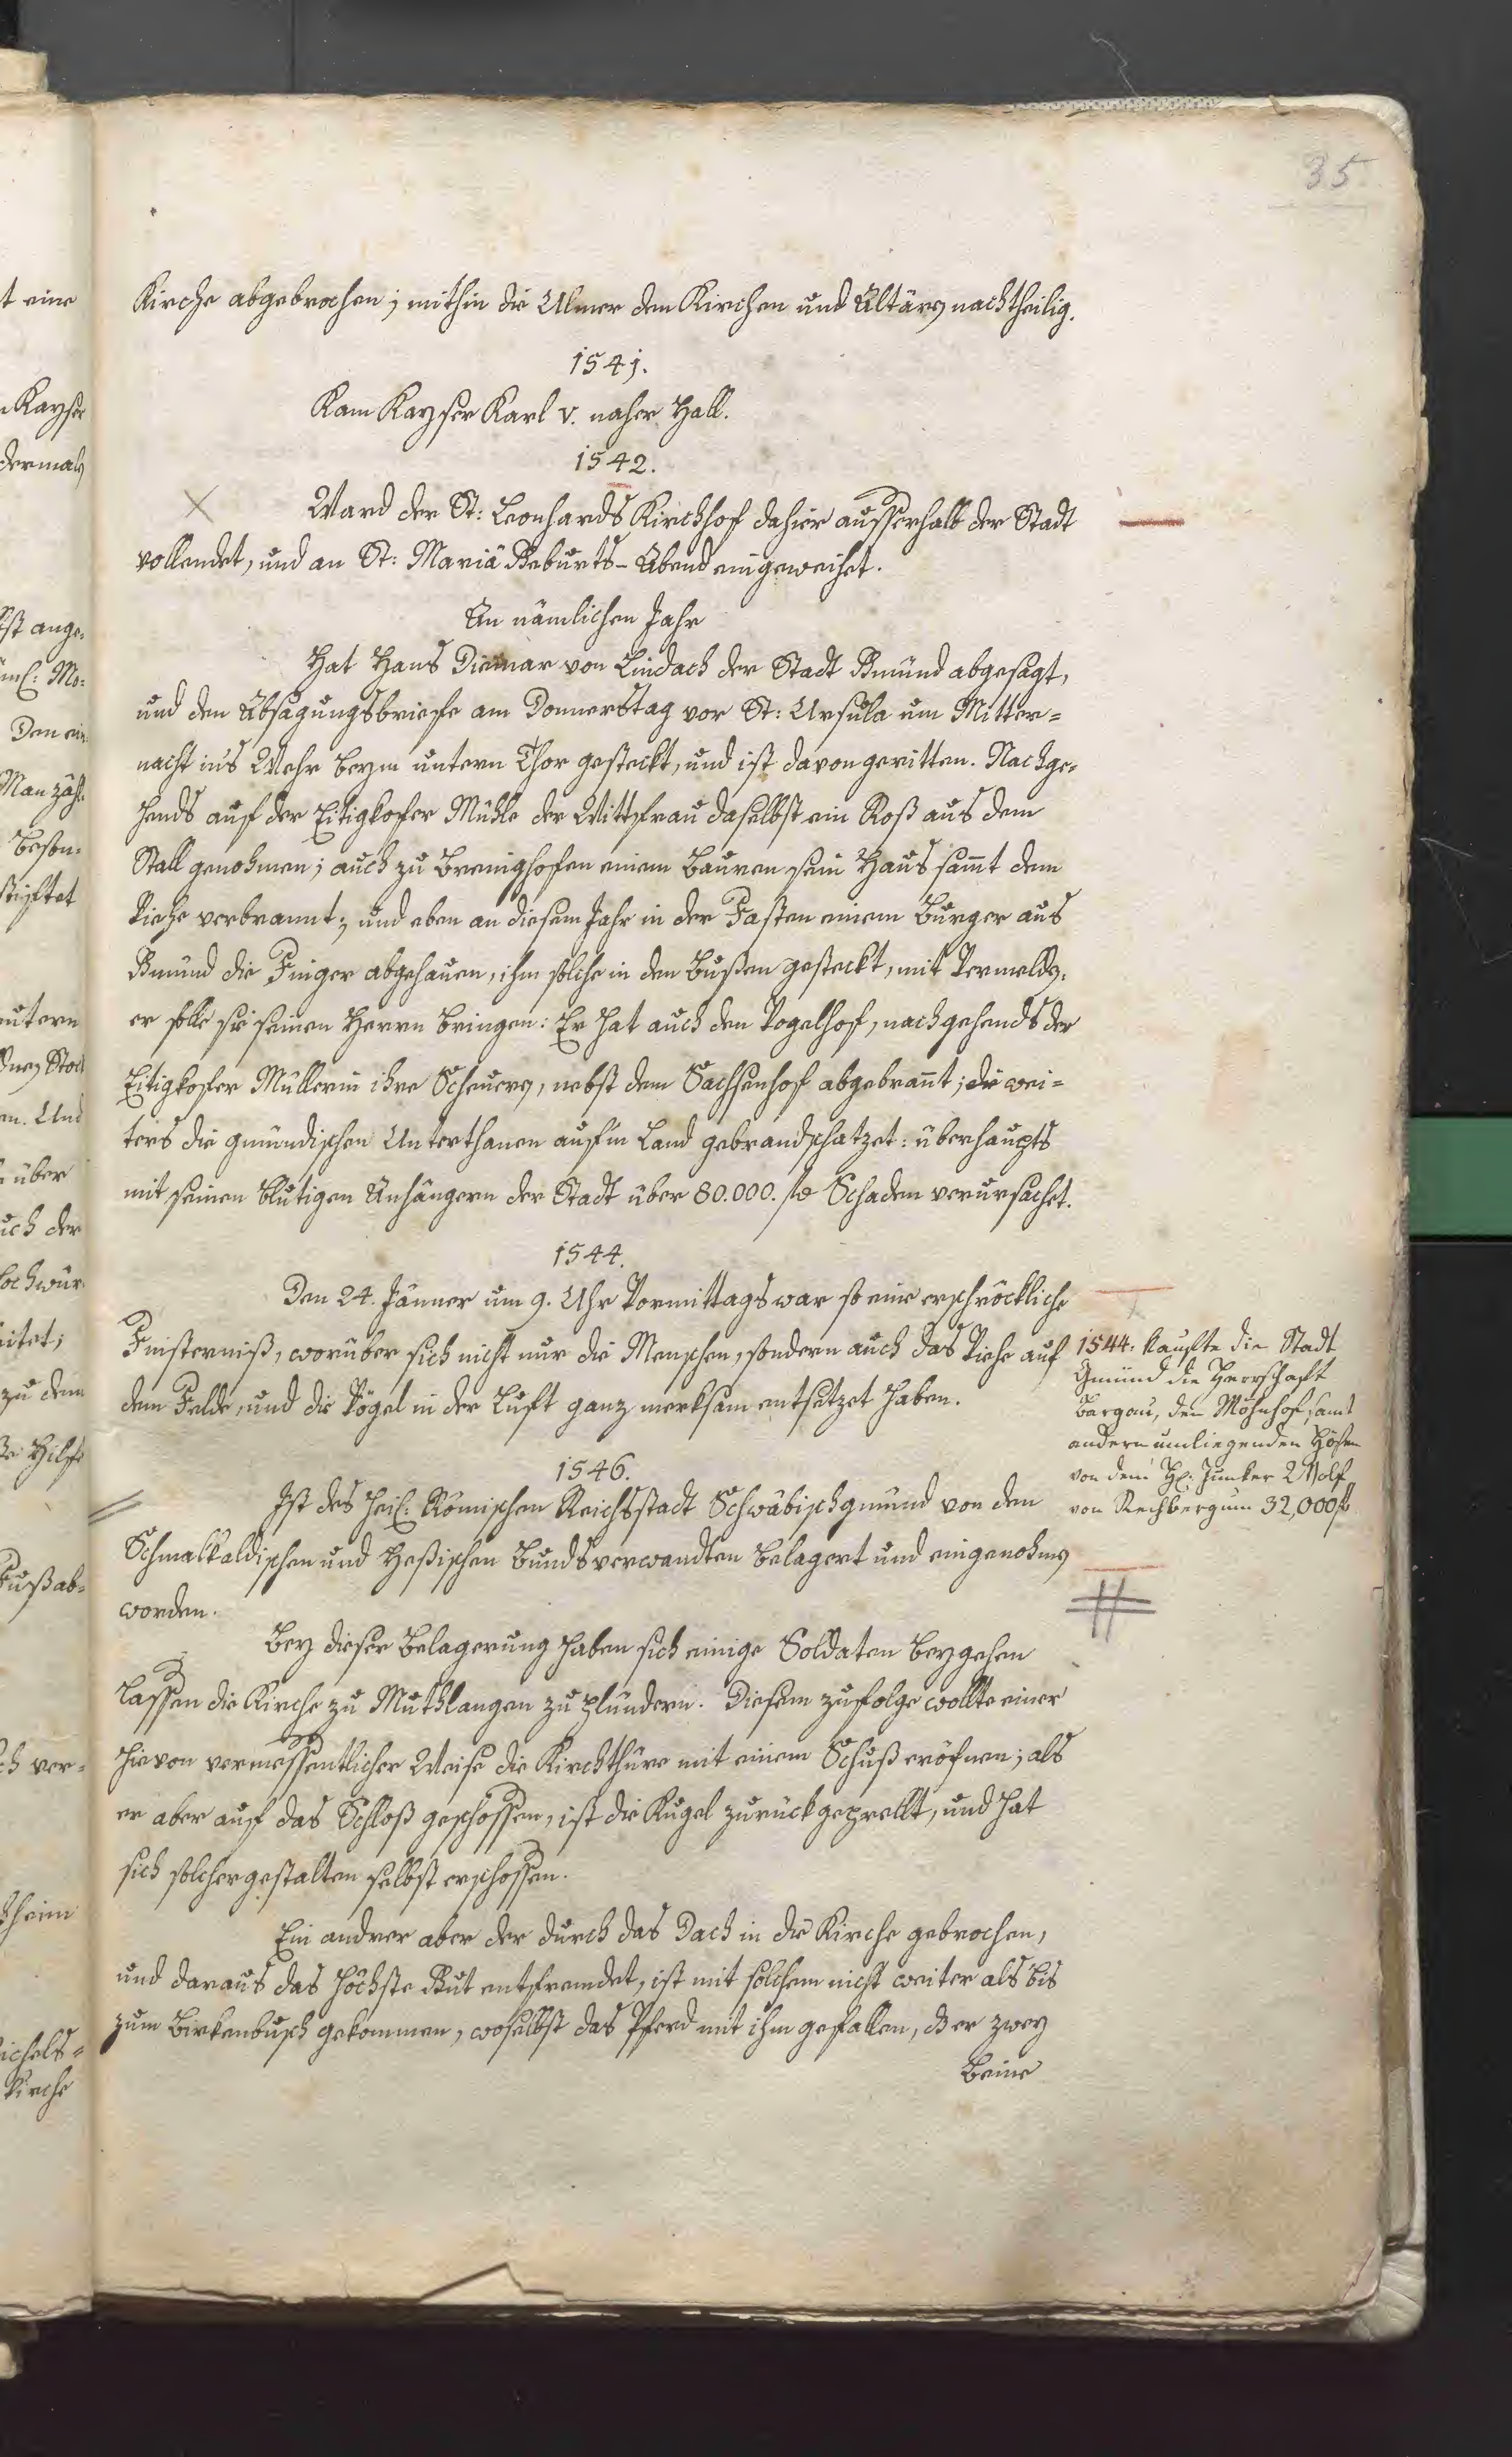 35.
Kirche abgebrochen; mithin die Ulmer den Kirchen und Altären nachtheilig.
1541.
Kam Kayser Karl v. naher Hall.
1542.
Ward der St: Leonhards Kirchhof dahier ausserhalb der Stadt
vollendet, und an St: Mariä Geburts-Abend eingeweihet.
An nämlichen Jahr
Hat Hans Diemar von Lindach der Stadt Gmünd abgesagt,
und den Absagungsbriefe am Donnerstag vor St: Ursula um Mitter=
nacht in's Wehr beym untern Thor gesteckt, und ist davon geritten. Nachge=
hends auf der Eitigkofer Mühle der Wittfrau daselbst ein Roß aus dem
Stall genohmen; auch zu Brenighofen einem Bauren sein Haus samt dem
Viehe verbrannt; und eben an diesem Jahr in der Fasten einem Burger aus
Gmünd die Finger abgehauen, ihm solche in den Bußen gesteckt, mit Vermelden,
er solle sie seinen Herrn bringen: Er hat auch den Vogelhof, nachgehends der
Eitigkofer Müllerin ihre Scheuern, nebst dem Sachsenhof abgebrant; die wei=
ters die gmündischen Unterthanen auf'm Land gebrandschatzet: überhaupts
mit seinen blutigen Anhängern der Stadt über 80.000. fl Schaden verursachet.
1544.
Den 24. Jänner um 9. Uhr Vormittags war so eine erschröckliche
Finsterniß, worüber sich nicht nur die Menschen, sondern auch das Viehe auf
dem Felde, und die Vögel in der Luft ganz merksam entsetzet haben.
1544. kaufte die Stadt
Gmünd die Herrschaft
Bargau, den Möhnhof samt
andern umliegenden Höfen
von dem H: Junker Wolf
von Rechberg um 32,000 fl
1546.
Ist des heil: Römischen Reichsstadt Schwäbischgmünd von dem
Schmalkaldischen und Heßischen Bundsverwandten belagert und eingenohmen
worden.
Bey dieser Belagerung haben sich einige Soldaten beygehen
lassen die Kirche zu Muthlangen zu plündern. Diesem zufolge wollte einer
hievon vermessentlicher Weise die Kirchthüre mit einem Schuß eröfnen; als
er aber auf das Schloß geschossen, ist die Kugel zurückgeprellt, und hat
sich solchergestalten selbst erschossen.
Ein andrer aber der durch das Dach in die Kirche gebrochen,
und daraus das höchste Gut entfremdet, ist mit solchem nicht weiter als bis
zum Birkenbusch gekommen, woselbst das Pferd mit ihm gefallen, dß er zwey
Beine